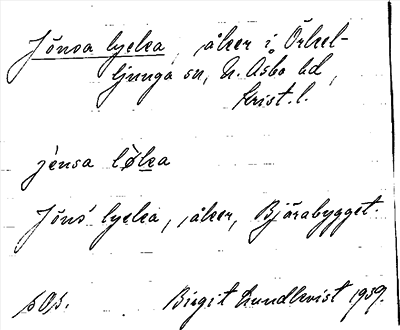 Jönsa lycka, åker i Örkel-
ljunga sn, N. Åsbo hd,
Krist. l.
jènsa løka
Jöns' lycka, åker, Bjärabygget.
sOs. Birgit Lundkvist 1959.